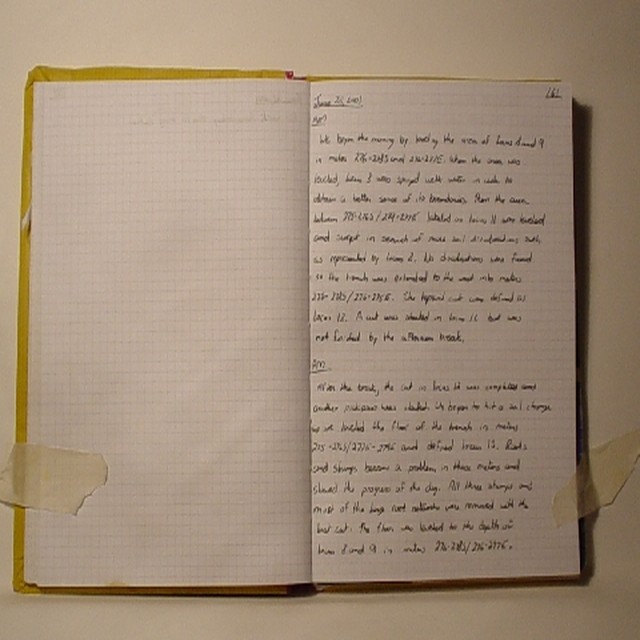 161
June 21, 2001
AM
We began the morning by leveling the area of locus 8 and 9
in meters and 276-277E. When the area was
leveled, locus 8 was sprayed with water in order to
obtain a better sense of its boundaries. Then the area
between labeled as locus 11 was leveled
and swept in search of more soil discolorations such
as represented by locus 8. No discolorations were found
so the trench was extended to the west into meters
The topsoil cut were defined as
locus 12. A cut was started in locus 11 but was
not finished by the afternoon break.
PM
After the break, the cut in locus 11 was completed and
another was started. We began to hit a soil change
as we leveled the floor of the trench in meters
and defined locus 13. Roots
and stumps became a problem in these meters and
slowed the progress of the dig. All three stumps and
most of the large root networks were removed with the
last cut. The floor was leveled to the depth of
locus 8 and 9 in meters